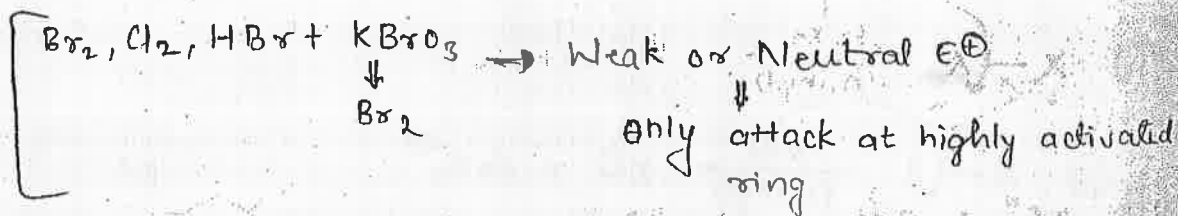 Br₂, Cl₂, HBr + KBrO₃ → Weak or Neutral E⊕
⇓ ⇓
Br₂ Only attack at highly activated
ring